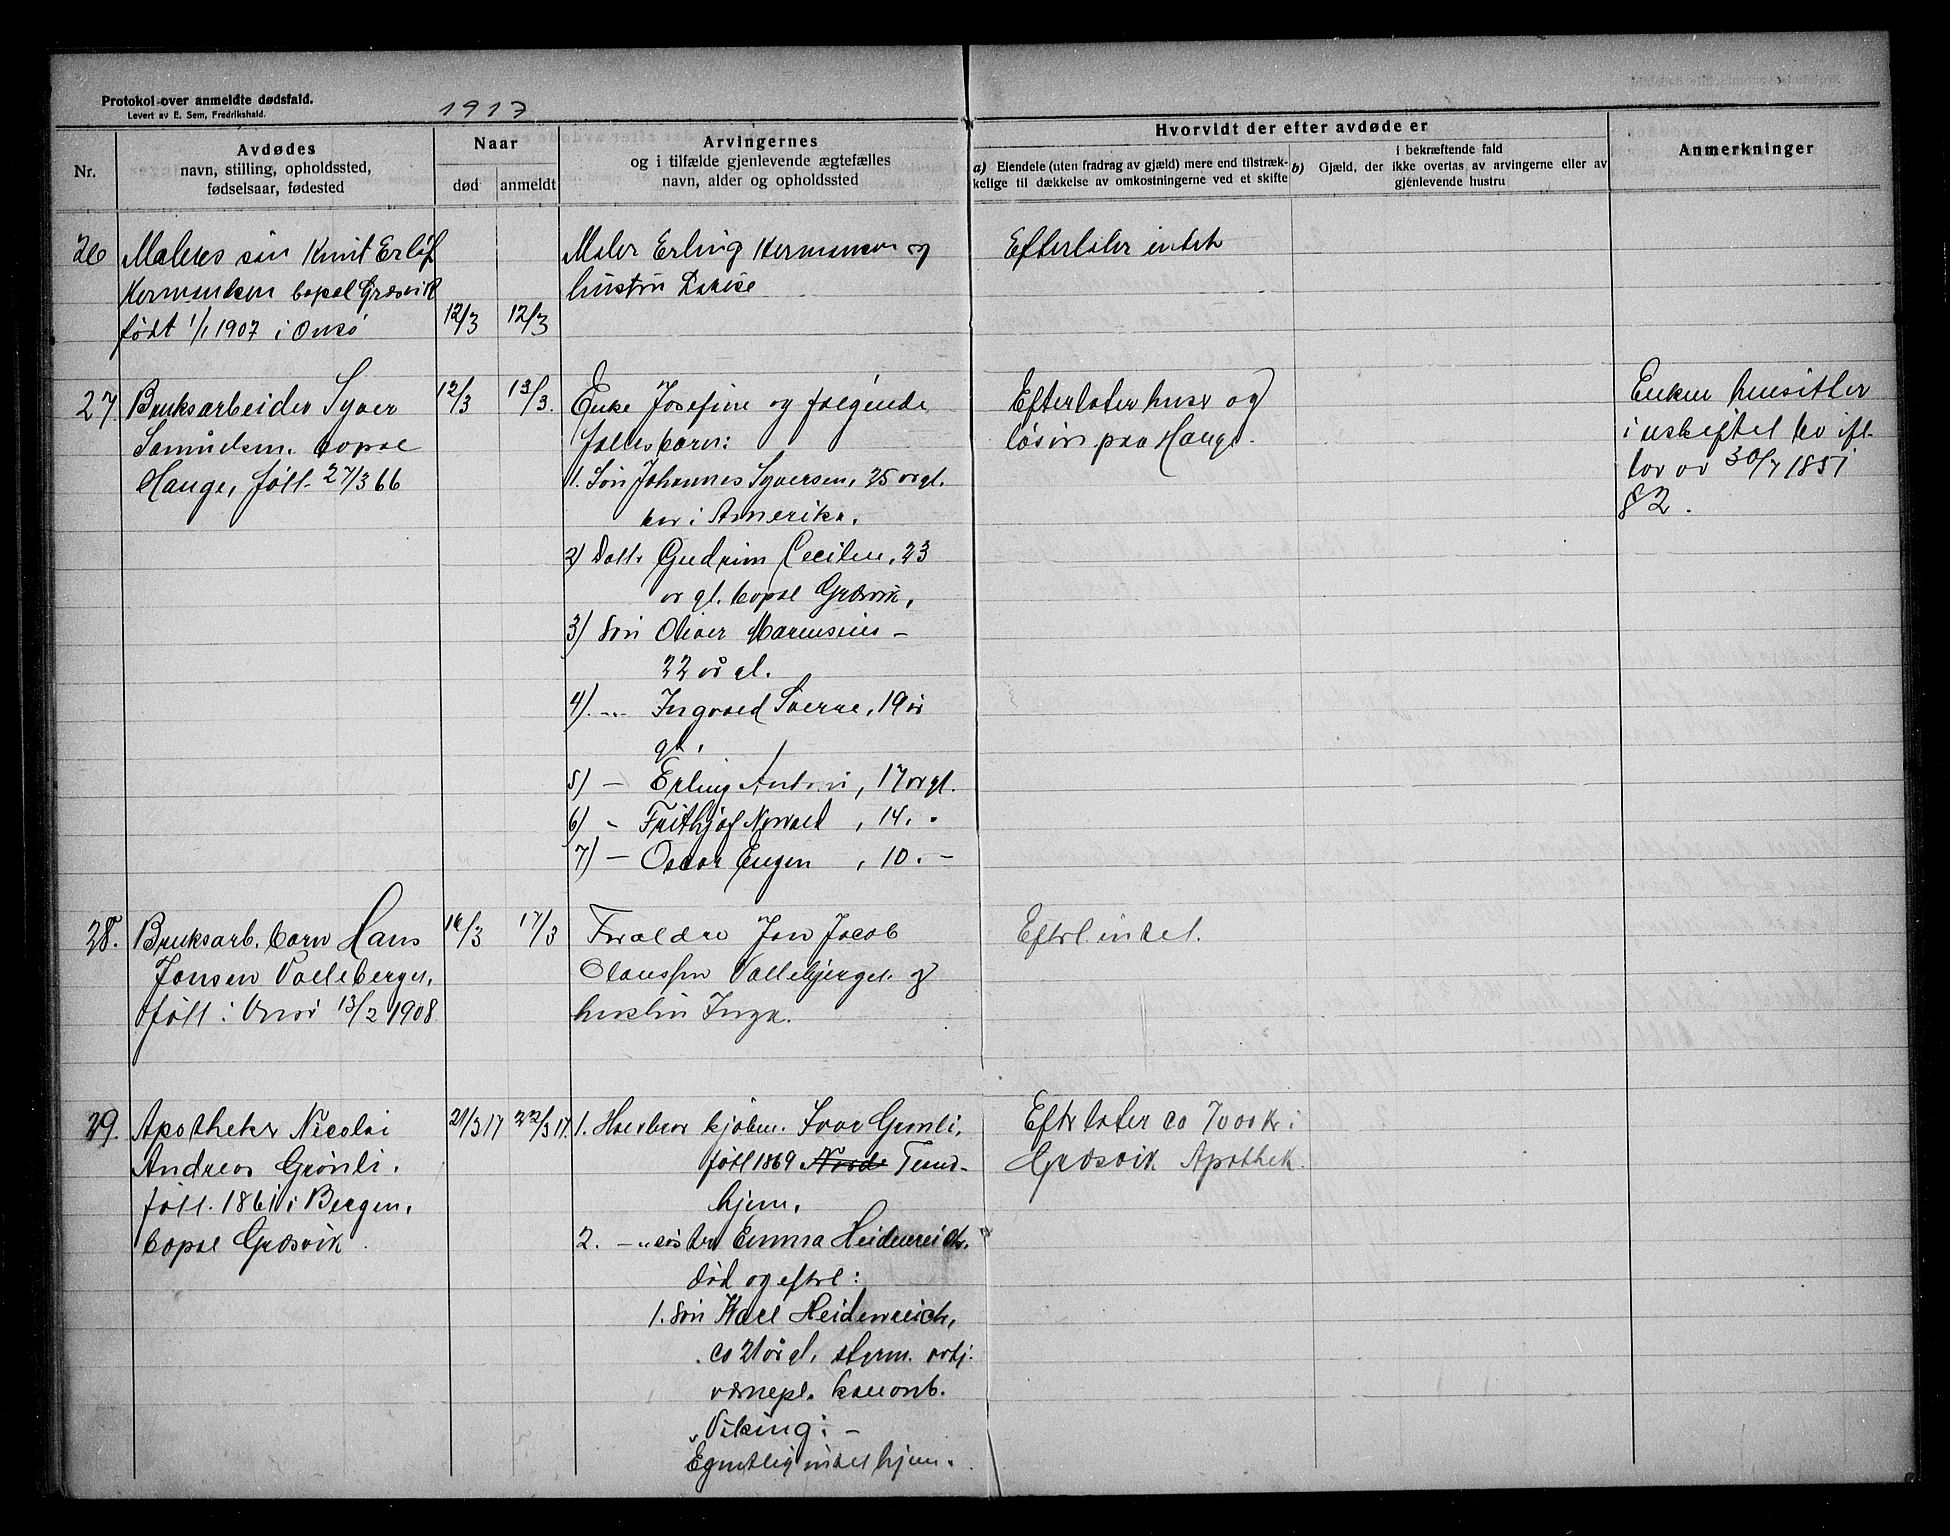 Protokol over anmeldte dødsfald.
Levert av E. Sem, Fredrikshald.
1917
Nr.
Avdødes
navn, stilling, opholdssted,
fødselsaar, fødested
Naar
død
anmeldt
Arvingernes
og i tilfælde gjenlevende ægtefælles
navn, alder og opholdssted
Hvorvidt der efter avdøde er
a) Eiendele (uten fradrag av gjæld) mere end tilstræk-
kelige til dækkelse av omkostningerne ved et skifte
i bekræftende fald
b) Gjæld, der ikke overtas av arvingerne eller av
gjenlevende hustru
Anmerkninger
26
Malers søn Knut Erlöf
Hermansen bopæl Græsvik
født 1/1 1907 i Onsø
12/3
12/3
Maler Erling Hermansen og
hustru Lovise
Efterlater intet
27.
Bruksarbeider Syver
Samuelsen. bopæl
Hauge, født. 27/3 66
12/3
13/3.
Enke Josefine og følgende
fællesbarn:
1. Søn Johannes Syversen, 25 år gl.
bor i Amerika.
2) Datt. Gudrun Cecilie, 23
år gl. bopæl Græsvik,
3) Søn Oliver Marensius –
22 år gl.
4). -"- Ingvald Sverre, 19 år
gl.
5) – Erling Anton, 17 år gl.
6) - Frithjof Norvald, 14. "
7) – Oscar Eugen, 10. –
Efterlater huse og
løsøre paa Hauge.
Enken hensitter
i uskiftet bo ifl.
lov av 30/7 1851
§ 2.
28.
Bruksarb. barn Hans
Jonsen Vallebergel,
født i Onsø 13/2 1908
16/3
17/3
Forældre Jon Jacob
Olaussen Vallebjerget og
hustru Inga.
Efterl. intet.
29.
Apotheker Nicolai
Andreas Grønli.
født. 1861 i Bergen,
bopæl Græsvik.
21/3 17
22/3 17.
1. Halvbror kjøbm. Ivar Grønli,
født 1869 Trond-
hjem,
2. –"– søster Emma Heidenreich,
død og efterl:
1. Søn Karl Heidenreich,
ca 21 år gl. styrm.
værnepl. kanonb.
"Viking" –
Egentlig intet hjem.
Efterlater ca 7000 kr i
Græsvik Apothek.